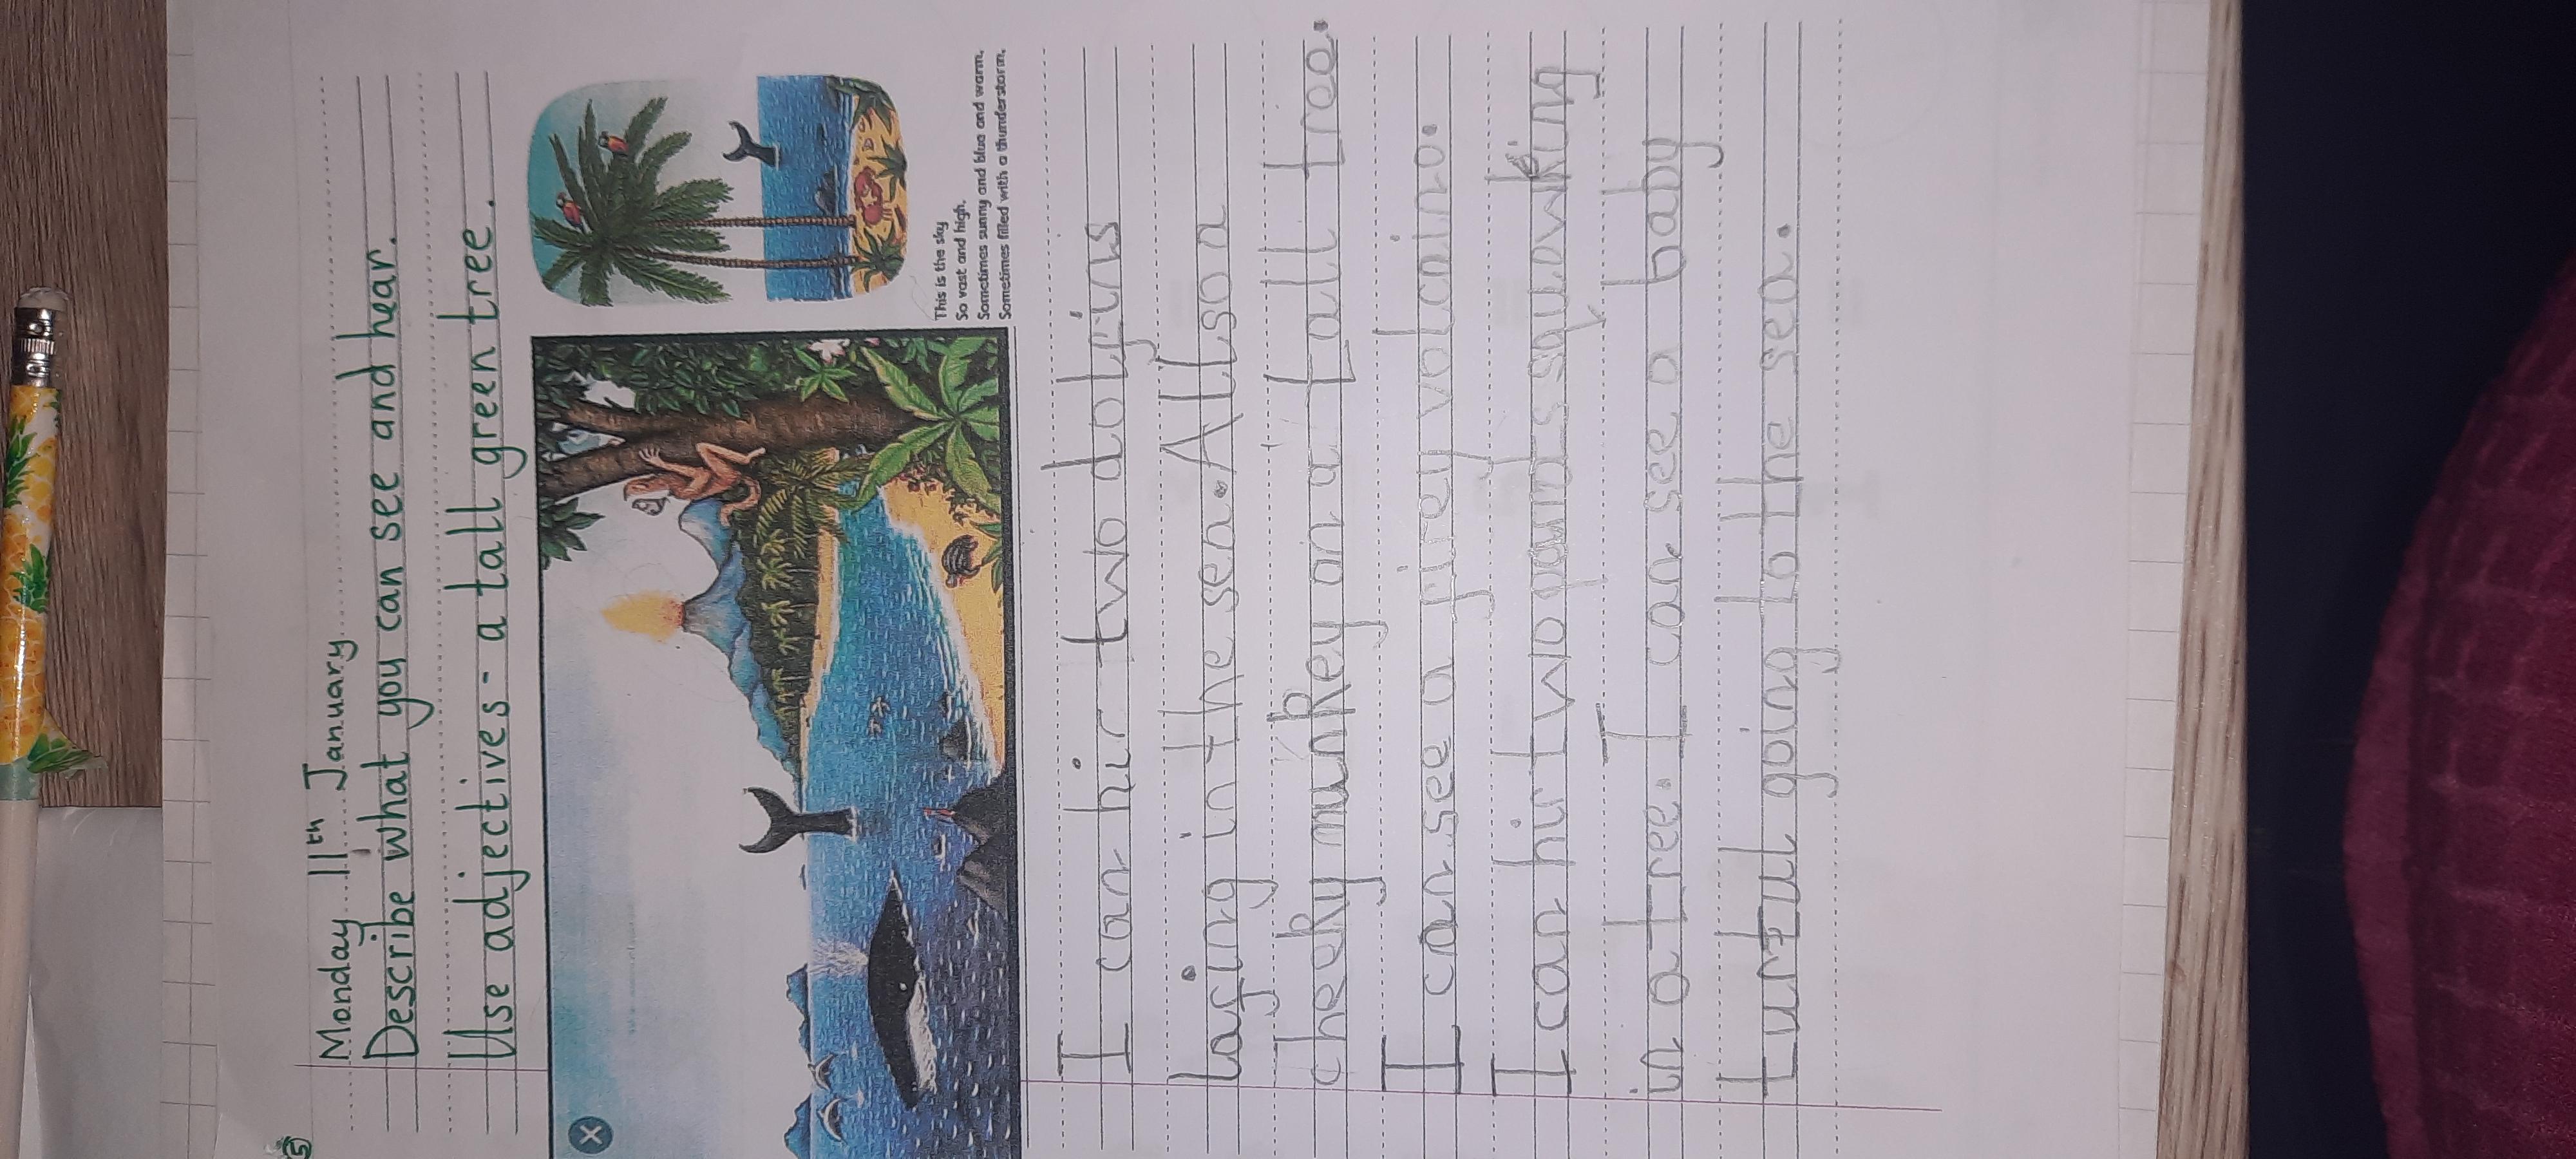 5
Monday 11th January
Describe what you can see and hear.
Use adjectives - a tall green tree.
X
This is the sky
So vast and high.
Sometimes sunny and blue and warm.
Sometimes filled with a thunderstorm.
I can hir two dolfins
lafing in the sea. Allso a
cheeky munkey on a tall tree.
I can see a firey volcaino.
I can hir two parrats squowking
in a tree. I can see a baby
turtul going to the sea.